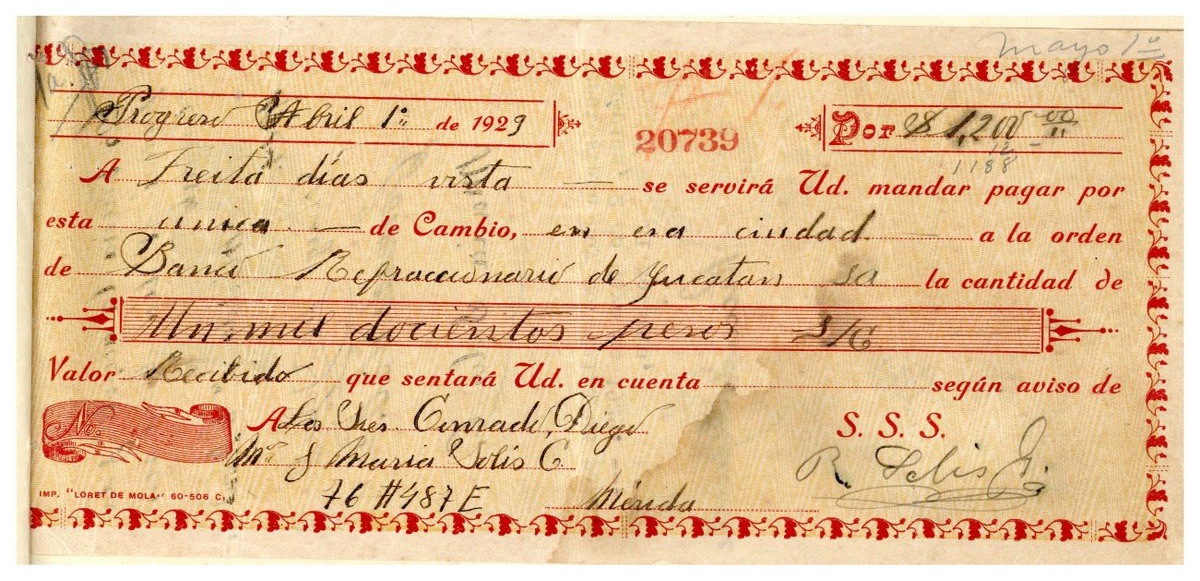 mayo 1º
Progreso Abril 1º de 1929
20739
Por $ 1,200 00
12
1188
A Treita días vista — se servirá Ud. mandar pagar por
esta unica — de Cambio, en esa ciudad — a la orden
de Banco Refraccionario de Yucatan SA la cantidad de
Un mil docientos pesos
Valor Recibido que sentará Ud. en cuenta según aviso de
No.
A Los Sres Conrado, Diego
S. S. S.
Mª J Maria Solis C
R. Solis
76 # 487 E
Mérida
IMP. "LORET DE MOLA" 60-506 C.